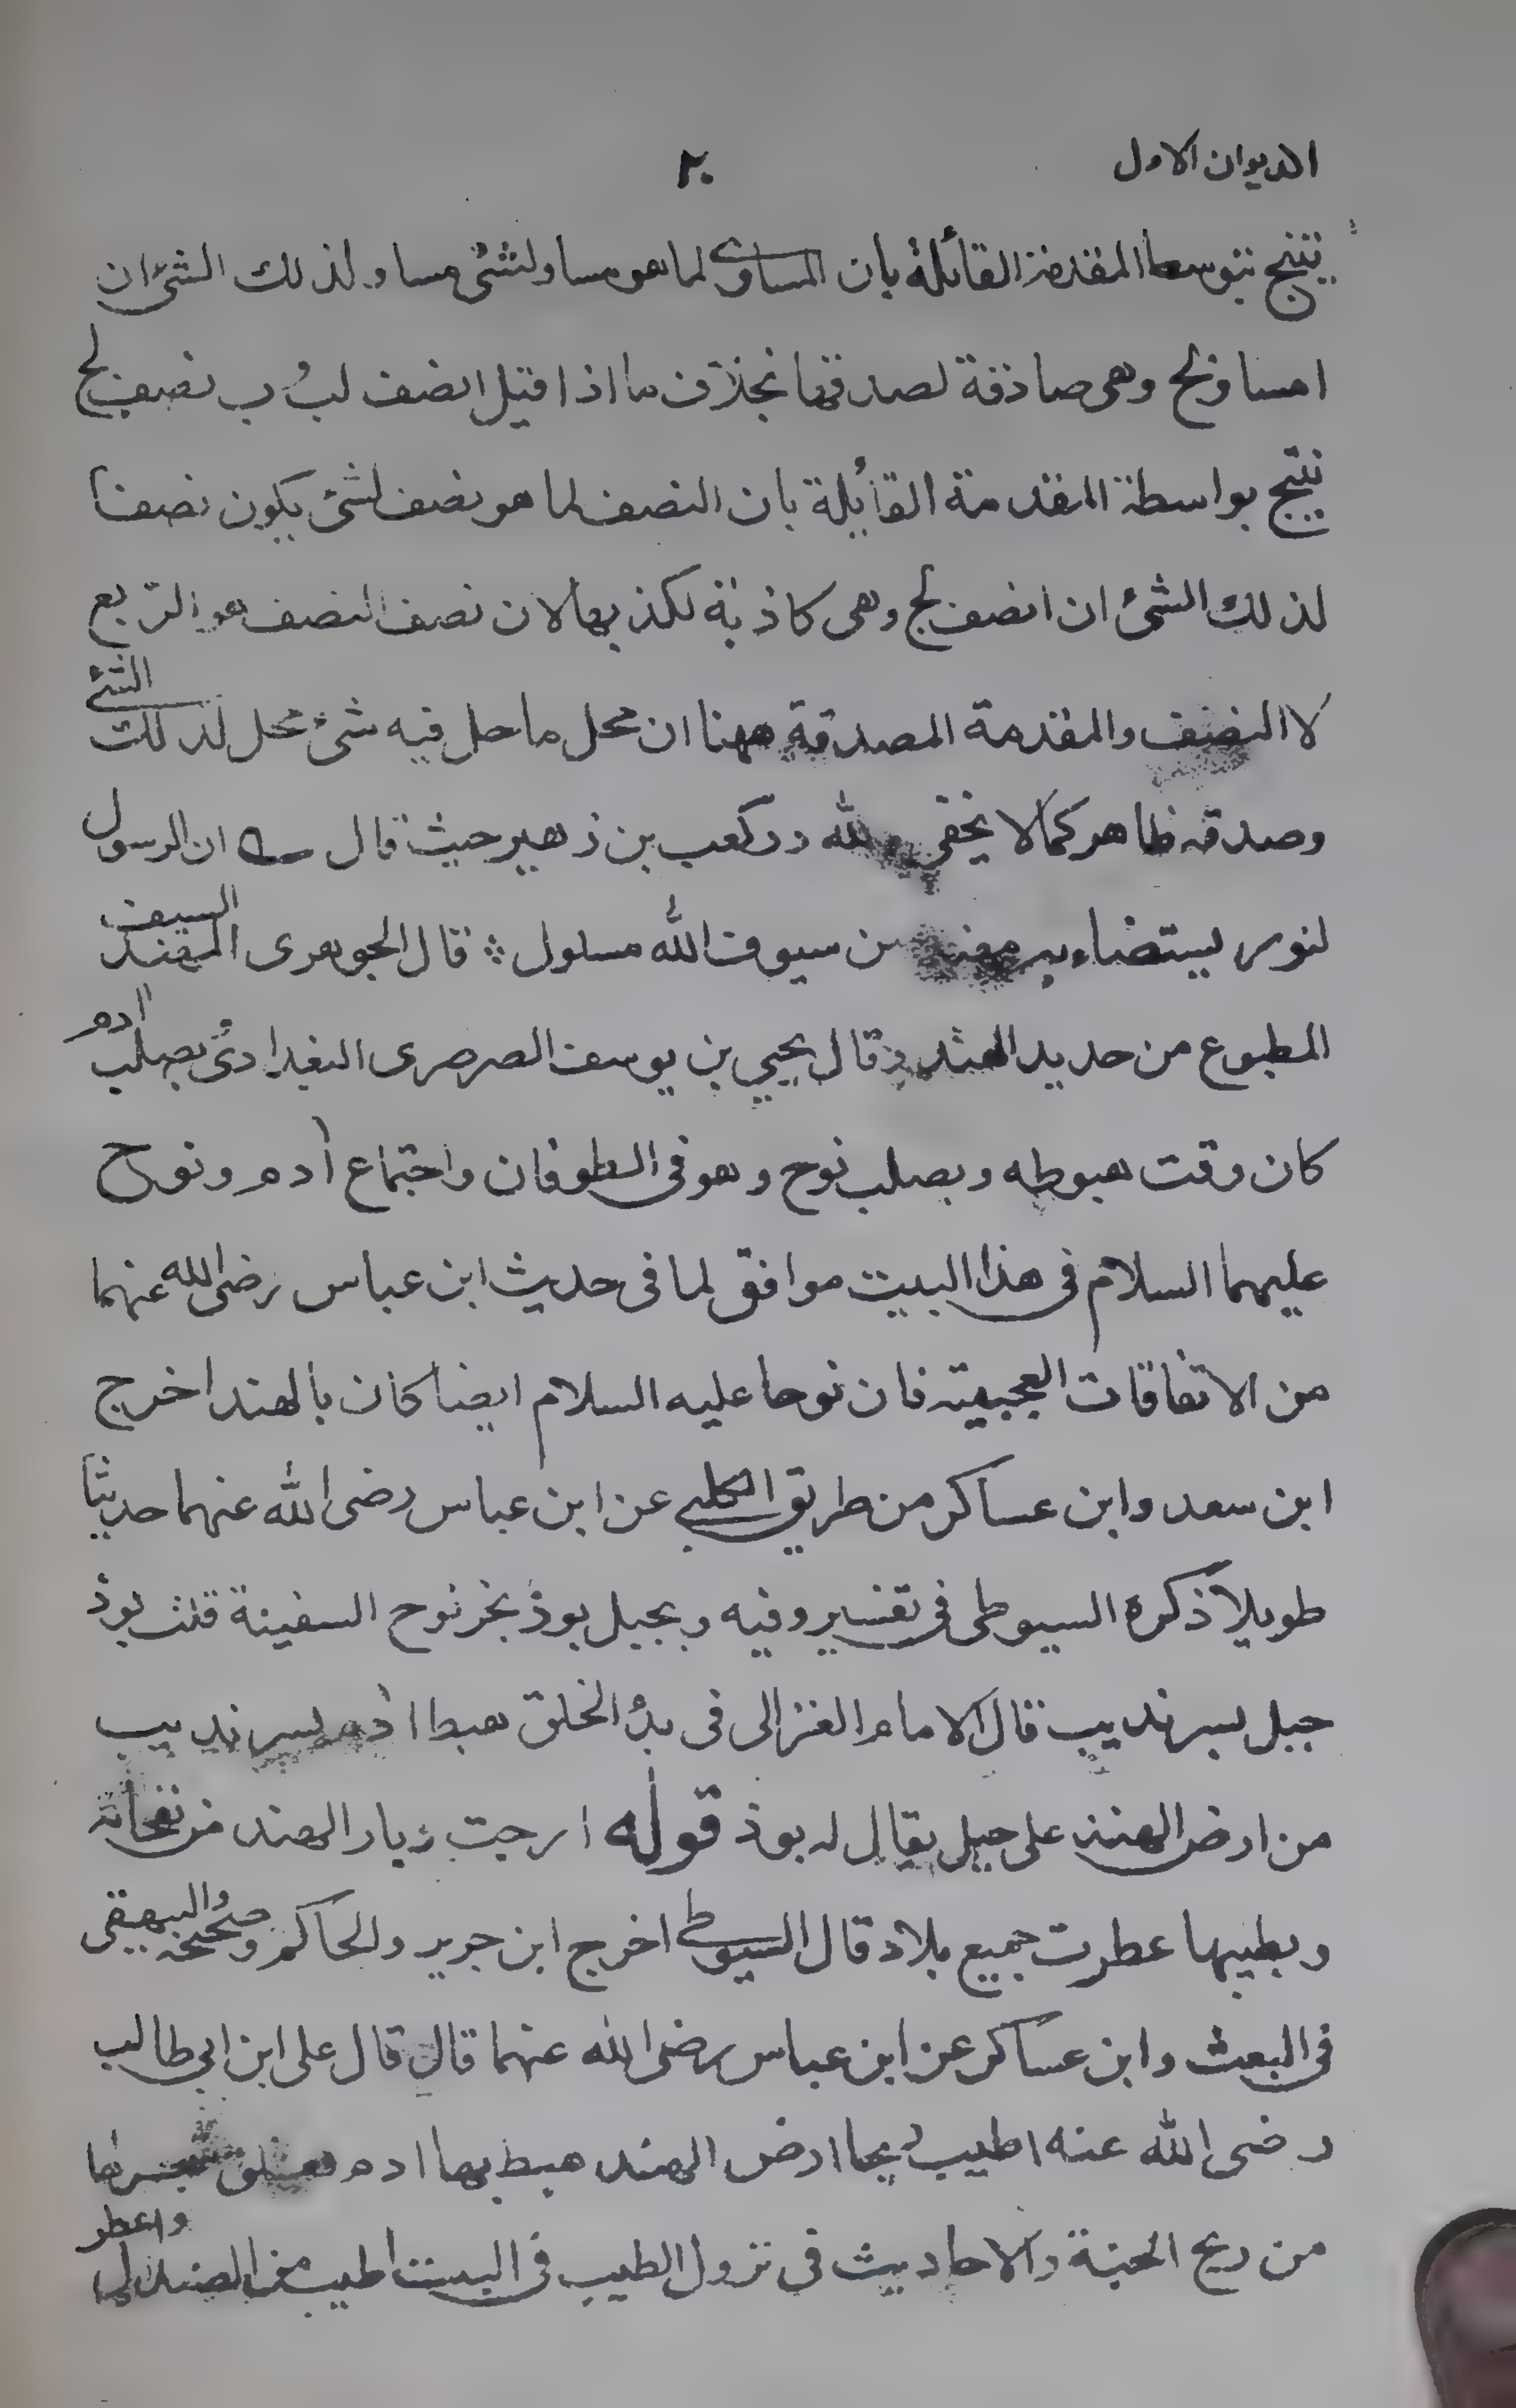 الديوان الاول
٢٠
ينتج بتوسط المقدمة القائلة بان المساوى لما هو مساو لشئ مساو لذلك الشئ ان
ا مساو لج وهى صادقة لصدقها بخلاف ما اذا قيل ا نصف لب و ب نصف لج
ينتج بواسطة المقدمة القائلة بان النصف لما هو نصف لشئ يكون نصفا
لذلك الشئ ان ا نصف لج وهى كاذبة لكذبها لان نصف النصف هو الربع
لا النصف والمقدمة المصدقة ههنا ان محل ما حل فيه شئ محل لذلك الشئ
وصدقه ظاهر كما لا يخفى ولله در كعب بن زهير حيث قال ان الرسول
لنور يستضاء به مهند من سيوف الله مسلول ؞ قال الجوهرى المهند السيف
المطبوع من حديد الهند وقال يحيى بن يوسف الصرصرى البغدادى بصلب ادم
كان وقت هبوطه وبصلب نوح وهو فى الطوفان واجتماع آدم ونوح
عليهما السلام فى هذا البيت موافق لما فى حديث ابن عباس رضى الله عنهما
من الاتفاقات العجيبة فان نوحا عليه السلام ايضا كان بالهند اخرج
ابن سعد وابن عساكر من طريق الكلبى عن ابن عباس رضى الله عنهما حديثا
طويلا ذكره السيوطى فى تفسيره وفيه وبجبل بوذ نجر نوح السفينة قلت بوذ
جبل بسرنديب قال الامام الغزالى فى بدئ الخلق هبط ادم بسرنديب
من ارض الهند على جبل يقال له بوذ قوله ارجت ديار الهند من نفحاته
وبطيبها عطرت جميع بلاد قال السيوطى اخرج ابن جرير والحاكم وصححه والبيهقى
فى البعث وابن عساكر عن ابن عباس رضى الله عنهما قال قال على ابن ابى طالب
رضى الله عنه اطيب ريحا ارض الهند هبط بها ادم فعلق شجرها
من ريح الجنة والاحاديث فى نزول الطيب فى البيت اطيب من الصندل واعطر